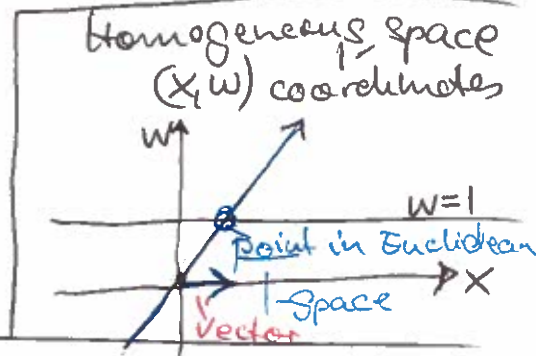 Homogeneous space
(X,W) coordinates
W
W=1
point in Euclidean
X
space
Vector